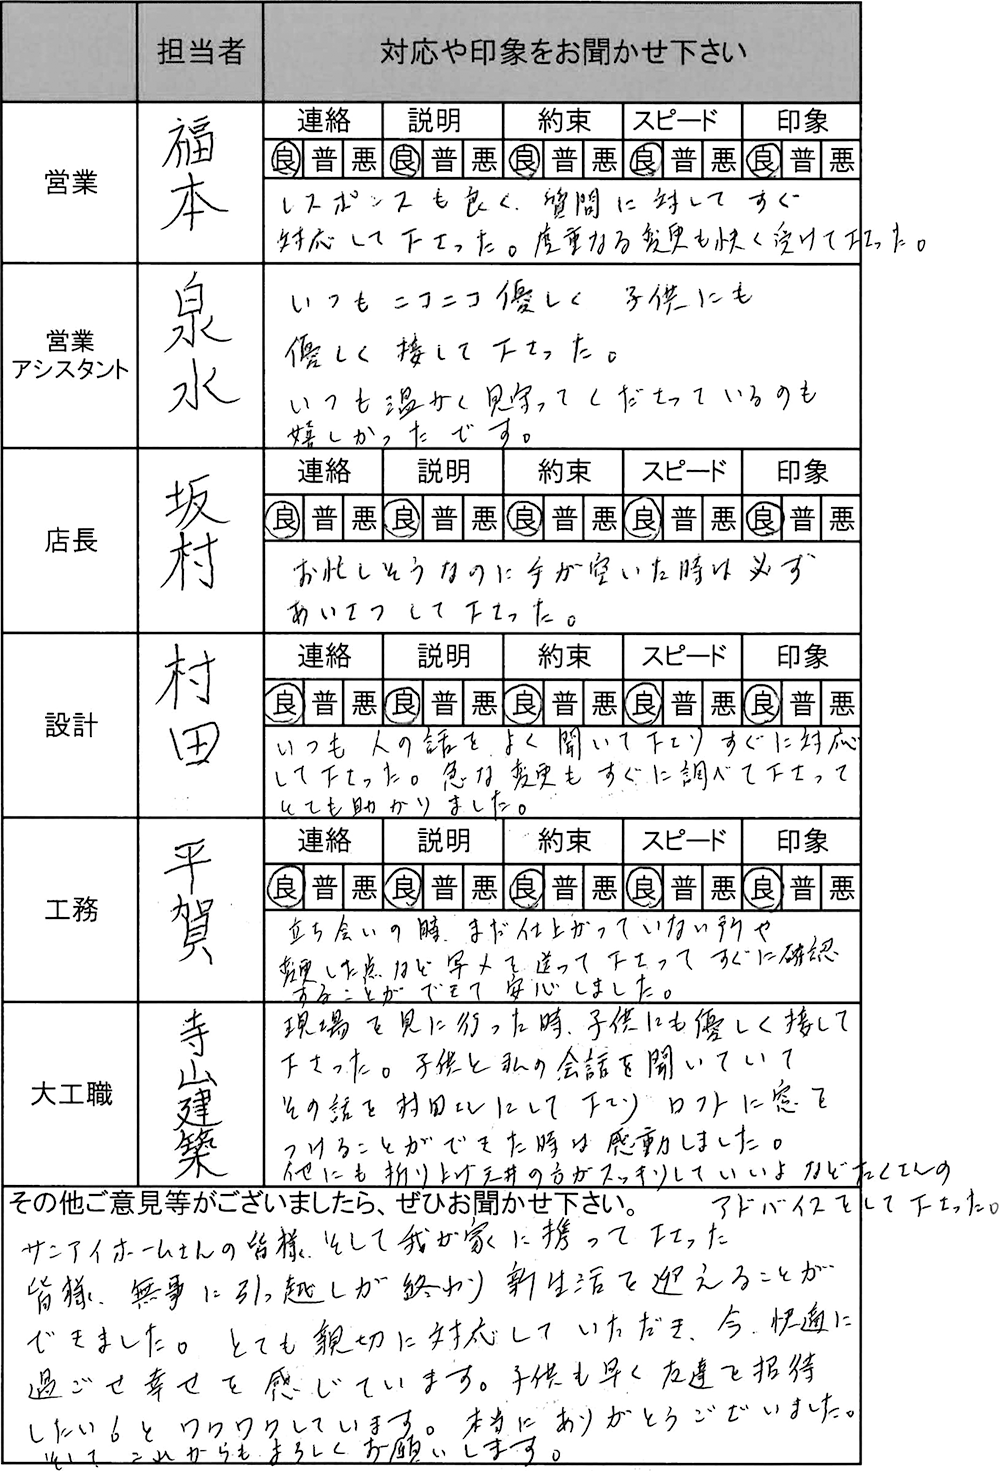 担当者 対応や印象をお聞かせ下さい
営業
福本
連絡 説明 約束 スピード 印象
良 普 悪 良 普 悪 良 普 悪 良 普 悪 良 普 悪
レスポンスも良く、質問に対してすぐ
対応して下さった。度重なる変更も快く受けて下さった。
営業
アシスタント
泉水
いつもニコニコ優しく 子供にも
優しく接して下さった。
いつも温かく見守ってくださっているのも
嬉しかったです。
店長
坂村
連絡 説明 約束 スピード 印象
良 普 悪 良 普 悪 良 普 悪 良 普 悪 良 普 悪
お忙しそうなのに手が空いた時は必ず
あいさつして下さった。
設計
村田
連絡 説明 約束 スピード 印象
良 普 悪 良 普 悪 良 普 悪 良 普 悪 良 普 悪
いつも人の話をよく聞いて下さりすぐに対応
して下さった。急な変更もすぐに調べて下さって
とても助かりました。
工務
平賀
連絡 説明 約束 スピード 印象
良 普 悪 良 普 悪 良 普 悪 良 普 悪 良 普 悪
立ち会いの時、まだ仕上がっていない所や
変更した点など写メを送って下さってすぐに確認
することができて安心しました。
大工職
寺山建築
現場を見に行った時、子供にも優しく接して
下さった。子供と私の会話を聞いていて
その話を村田さんにして下さりロフトに窓を
つけることができた時は感動しました。
他にも折り上げ天井の方がスッキリしていいよなどたくさんの
アドバイスをして下さった。
その他ご意見等がございましたら、ぜひお聞かせ下さい。
サンアイホームさんの皆様、そして我が家に携って下さった
皆様、無事に引っ越しが終わり新生活を迎えることが
できました。とても親切に対応していただき、今、快適に
過ごせ幸せを感じています。子供も早く友達を招待
したい6とワクワクしています。本当にありがとうございました。
そして、これからもよろしくお願いします。